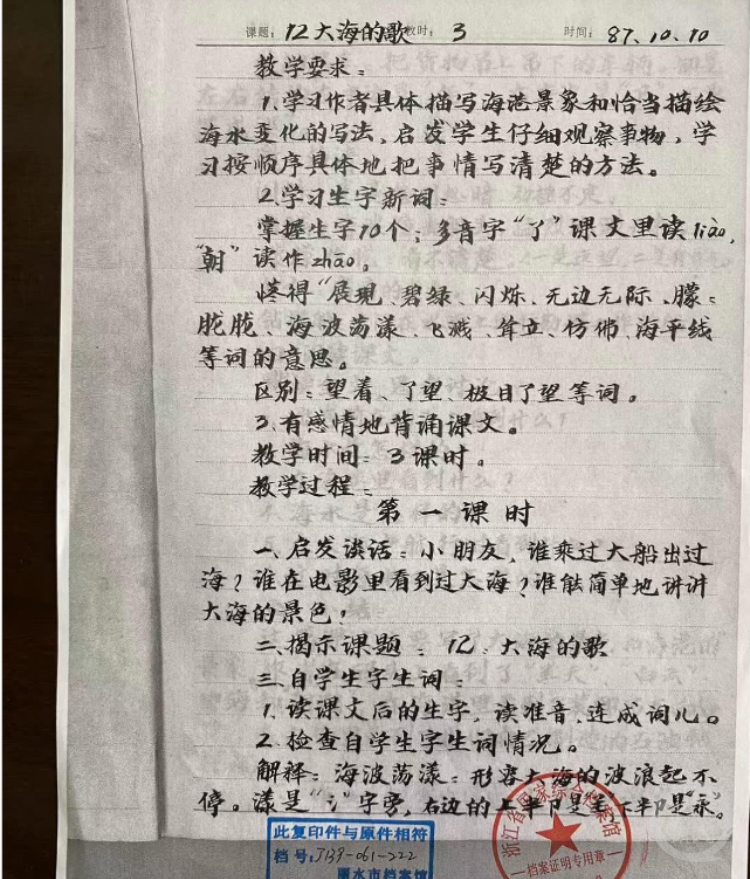 课题：12大海的歌 教时：3 时间：87.10.10
教学要求：
1.学习作者具体描写海港景象和恰当描绘
海水变化的写法，启发学生仔细观察事物，学
习按顺序具体地把事情写清楚的方法。
2.学习生字新词：
掌握生字10个；多音字“了”课文里读liào,
“朝”读作zhāo。
懂得“展现、碧绿、闪烁、无边无际、朦：
胧胧、海波荡漾、飞溅、耸立、仿佛、海平线
等词的意思。
区别：望着、了望、极目了望等词。
3.有感情地背诵课文。
教学时间：3课时。
教学过程：
第一课时
一、启发谈话：小朋友，谁乘过大船出过
海？谁在电影里看到过大海？谁能简单地讲讲
大海的景色！
二、揭示课题：12、大海的歌
三、自学生字生词：
1.读课文后的生字，读准音，连成词儿。
2.检查自学生字生词情况。
解释：海波荡漾：形容大海的波浪起不
停。漾是“氵”字旁，右边的上半卩是“𦍌”下半卩是“永”。
此复印件与原件相符
档号：J139-061-222
丽水市档案馆
浙江省国家综合档案馆
档案证明专用章